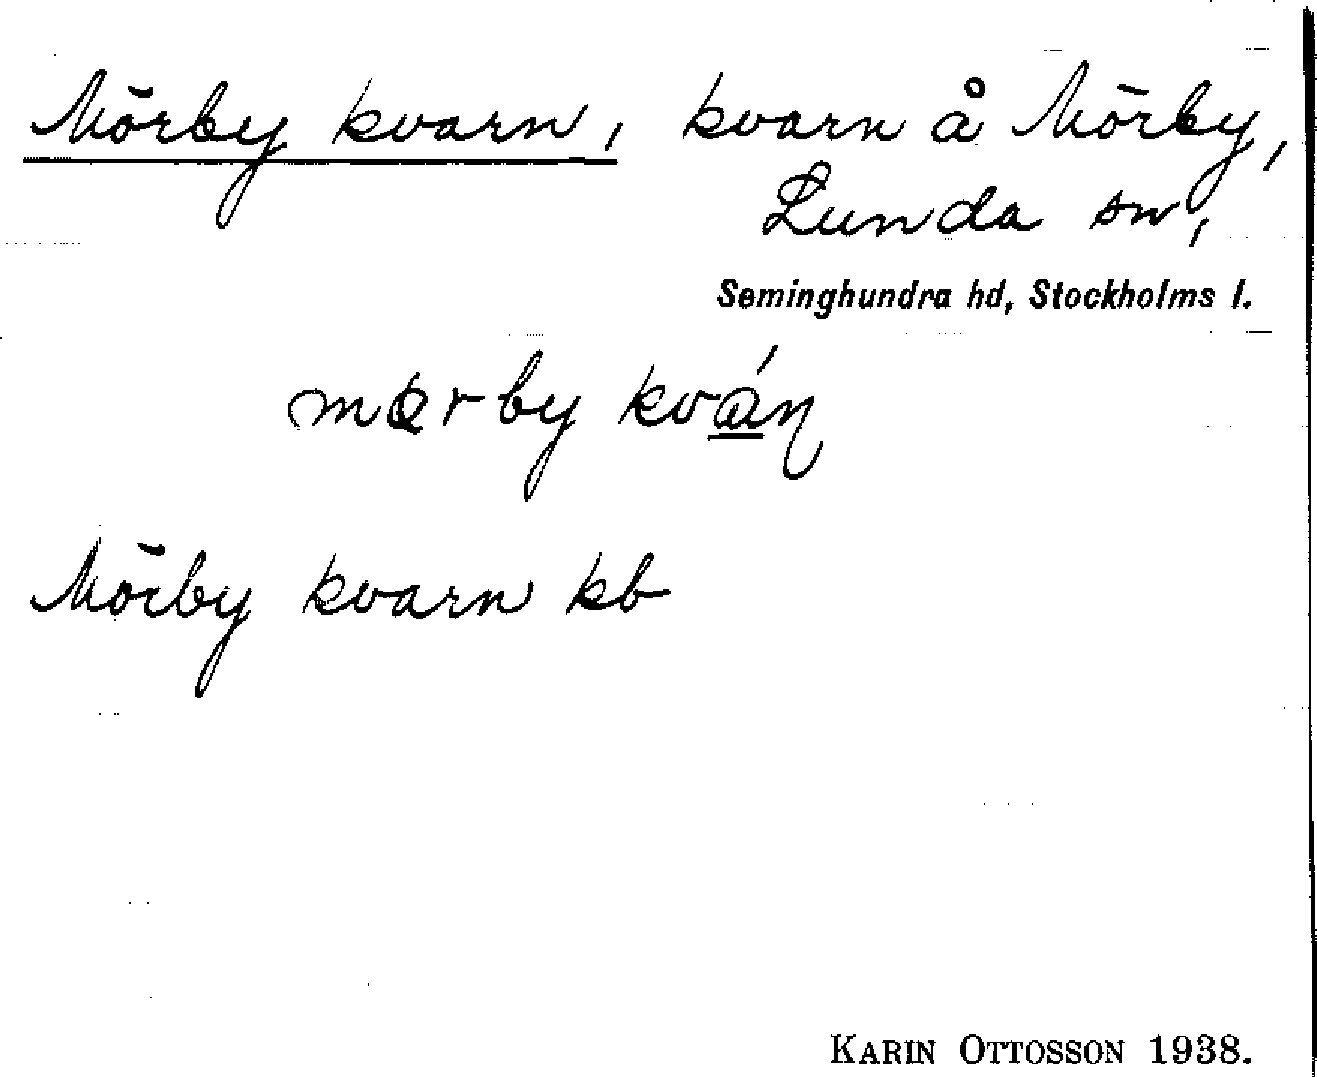 Mörby kvarn, kvarn å Mörby,
Lunda sn,
Seminghundra hd, Stockholms l.
by
Mörby kvarn kb
KARIN OTTOSSON 1938.